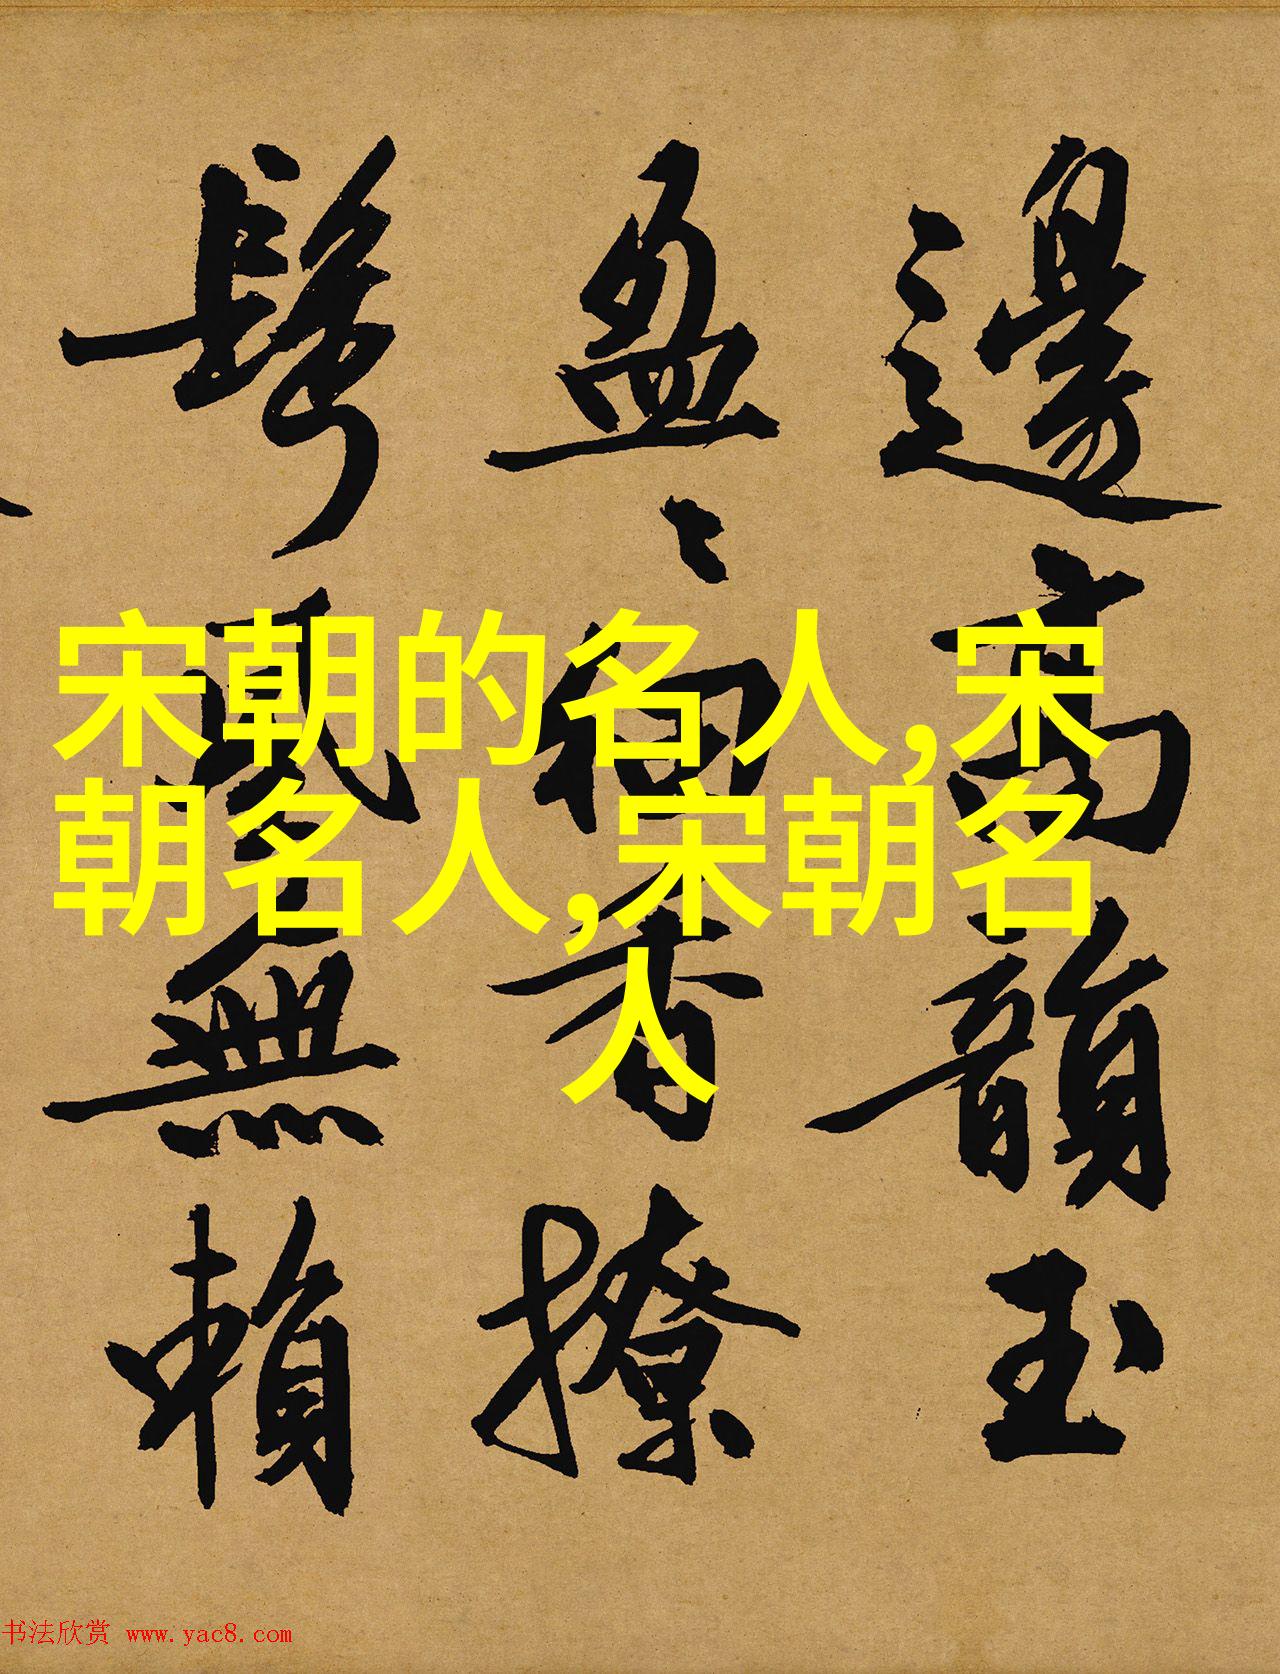 邊高韻玉
盈〻香撩
鬢風無賴
宋朝的名人,宋
朝名人,宋朝名
人
书法欣赏 www.yac8.com